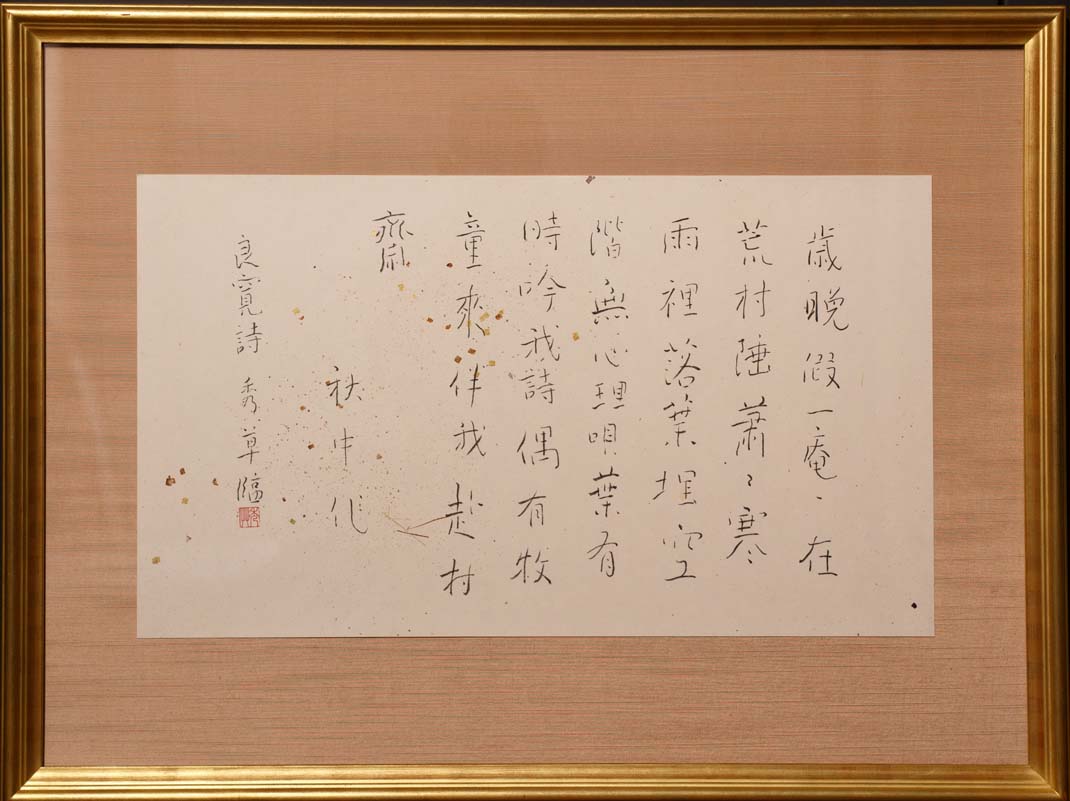 歳晩假一庵〻在
荒村陲蕭〻寒
雨裡落葉埋空
階無心理唄葉有
時吟我詩偶有牧
童來伴我赴村
齋
秋中作
良寛詩 秀草臨